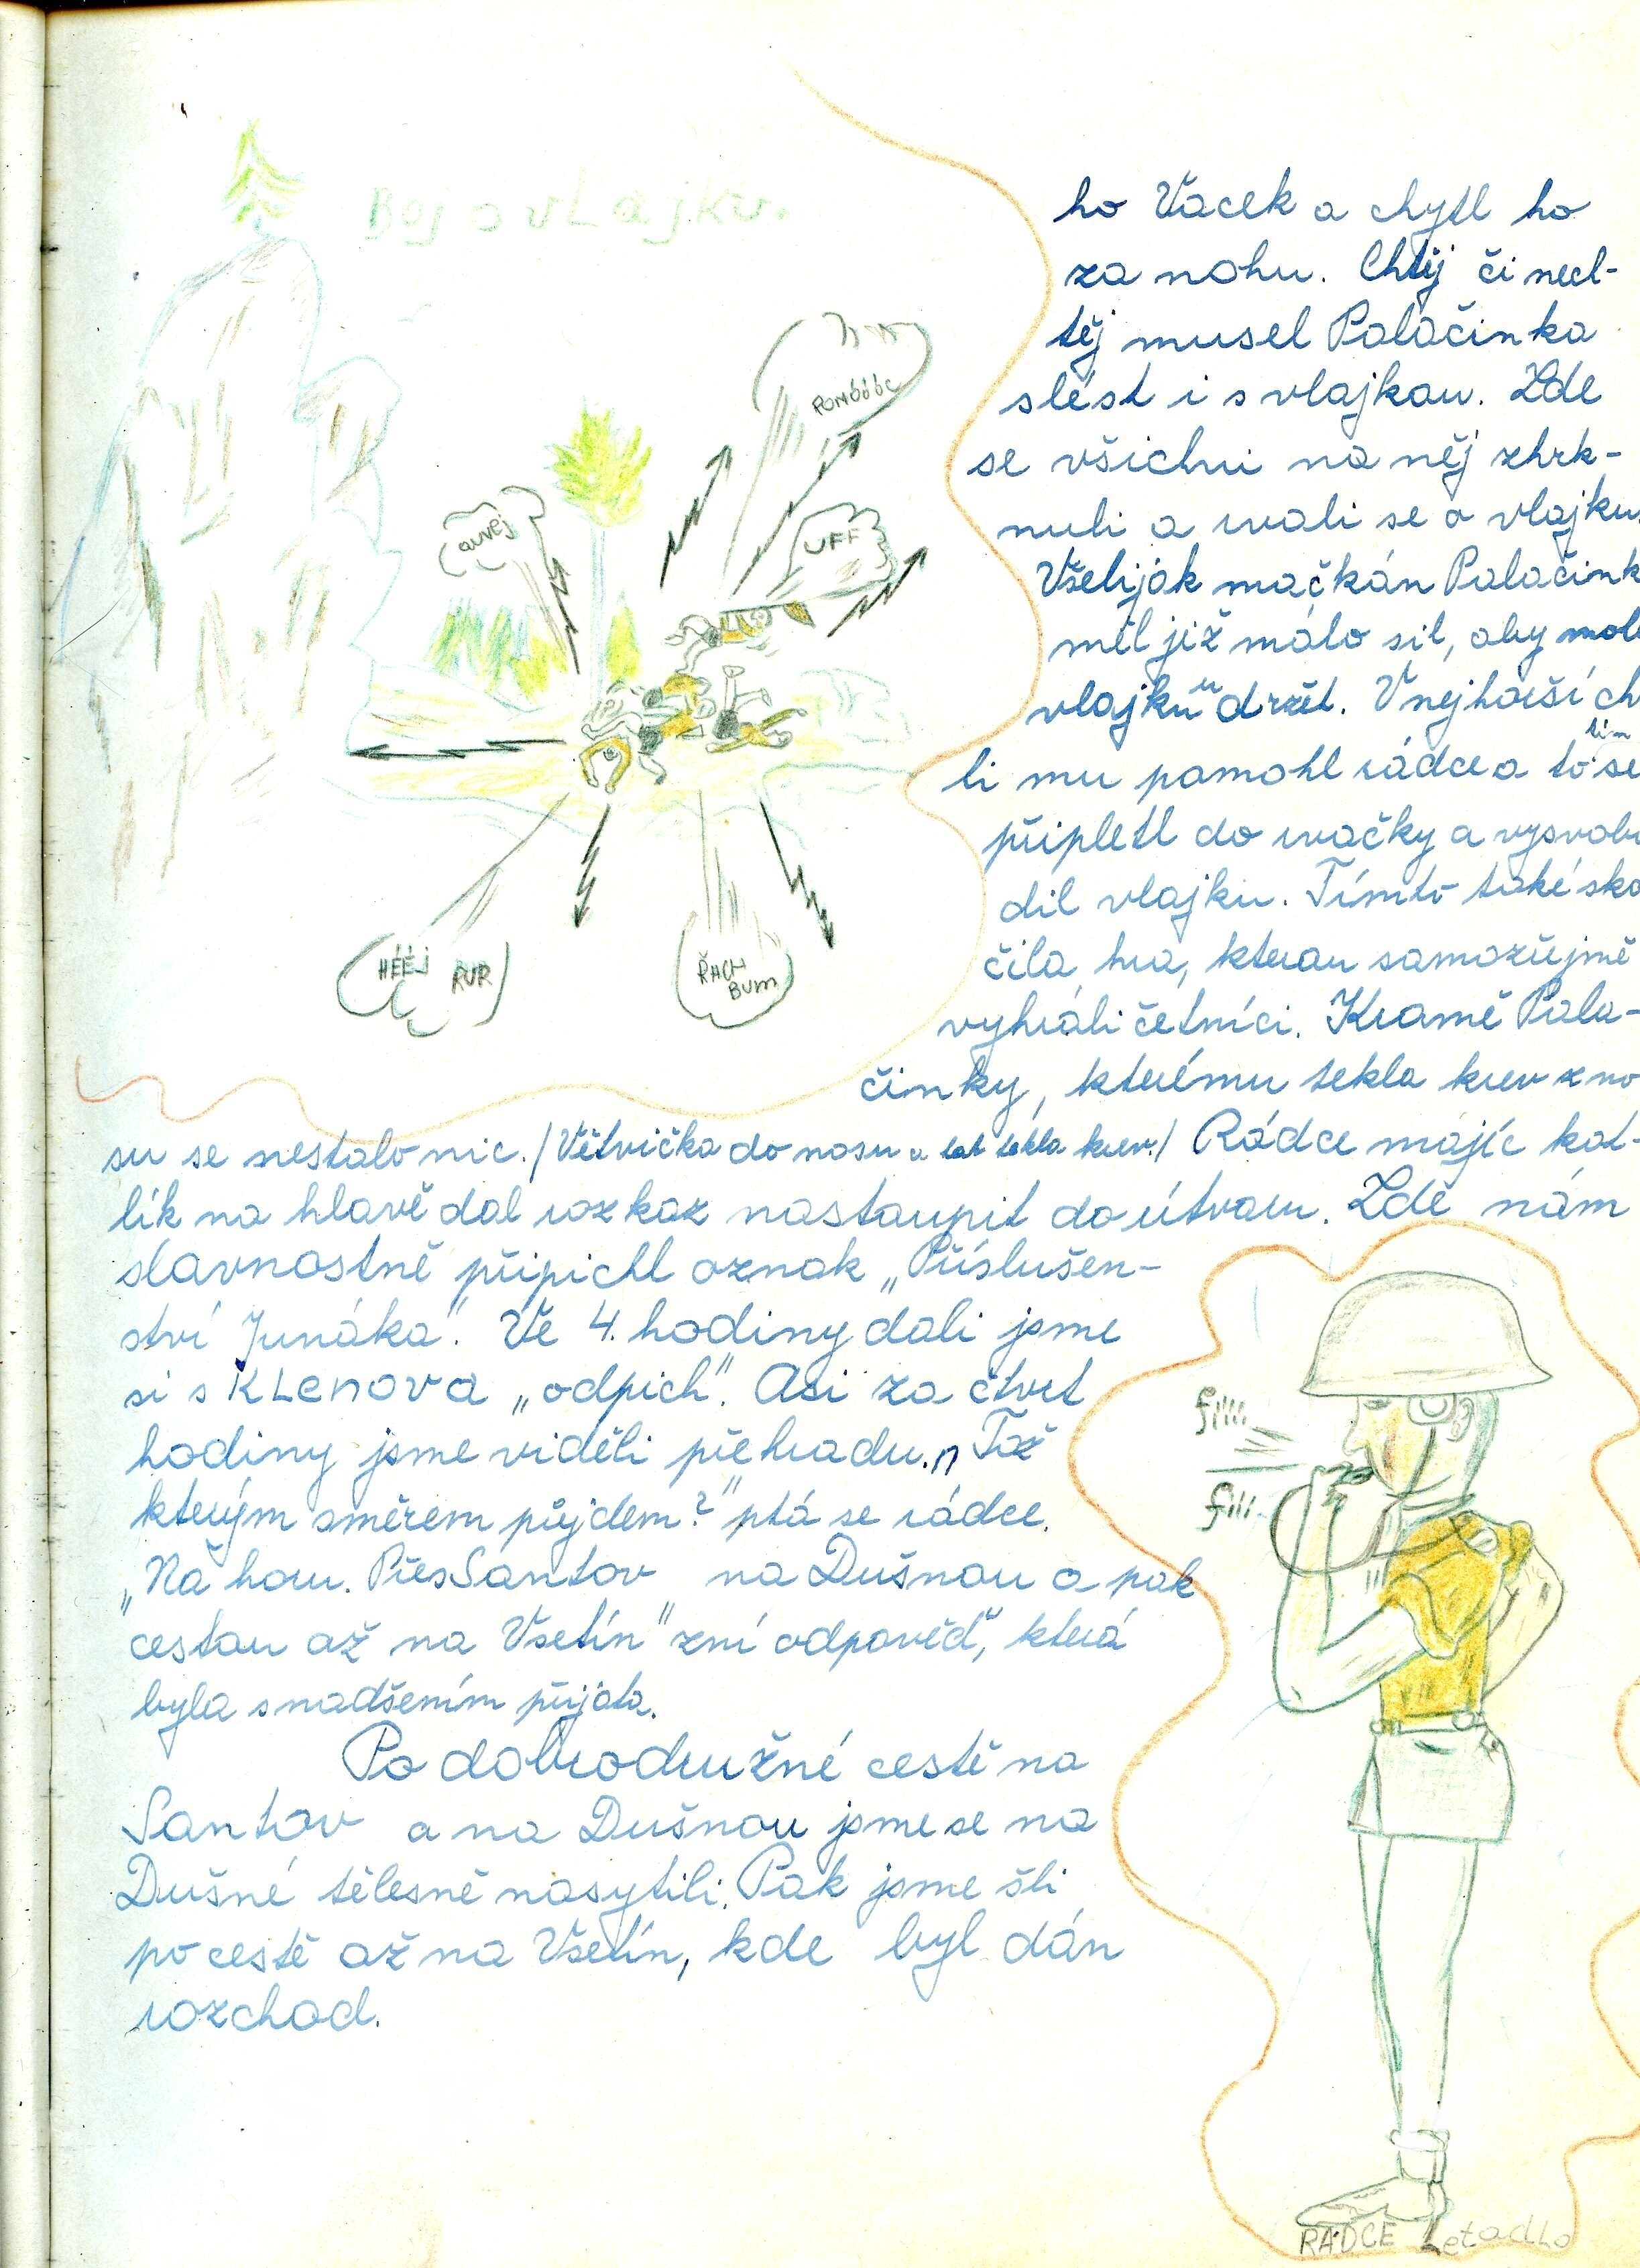 Boj o vLajku.
POMÓÓÓC
auvej
UFF
HÉÉJ RUP
ŘACH BUM
ho Vacek a chytl ho
za nohu. Chtěj či nech-
těj musel Palačinka
slést i s vlajkou. Zde
se všichni na něj zhrk-
nuli a rvali se o vlajku.
Všelijak mačkán Palačink
měl již málo sil, aby mohl
vlajku udržet. V nejhorší ch
li mu pomohl rádce a to tím se
připletl do rvačky a vysvobo
dil vlajku. Tímto také sko
čila hra, kterou samozřejmě
vyhráli četníci. Kromě Pala-
činky, kterému tekla krev z no
su se nestalo nic. /Větvička do nosu a tekla krev./ Rádce majíc kot-
lík na hlavě dal rozkaz nastoupit do útvaru. Zde nám
slavnostně připichl oznak „Příslušen-
ství Junáka". Ve 4. hodiny dali jsme
si s KLenova „odpich". Asi za čtvrt
hodiny jsme viděli přehradu. „Tož
kterým směrem půjdem?" ptá se rádce.
„Na horu. Přes Santov na Dušnou a pak
cestou až na Vsetín" zní odpověď, která
byla s nadšením přijata.
Po dobrodružné cestě na
Santov a na Dušnou jsme se na
Dušné tělesně nasytili. Pak jsme šli
po cestě až na Vsetín, kde byl dán
rozchod.
fiiii
fiii
RÁDCE Letadlo